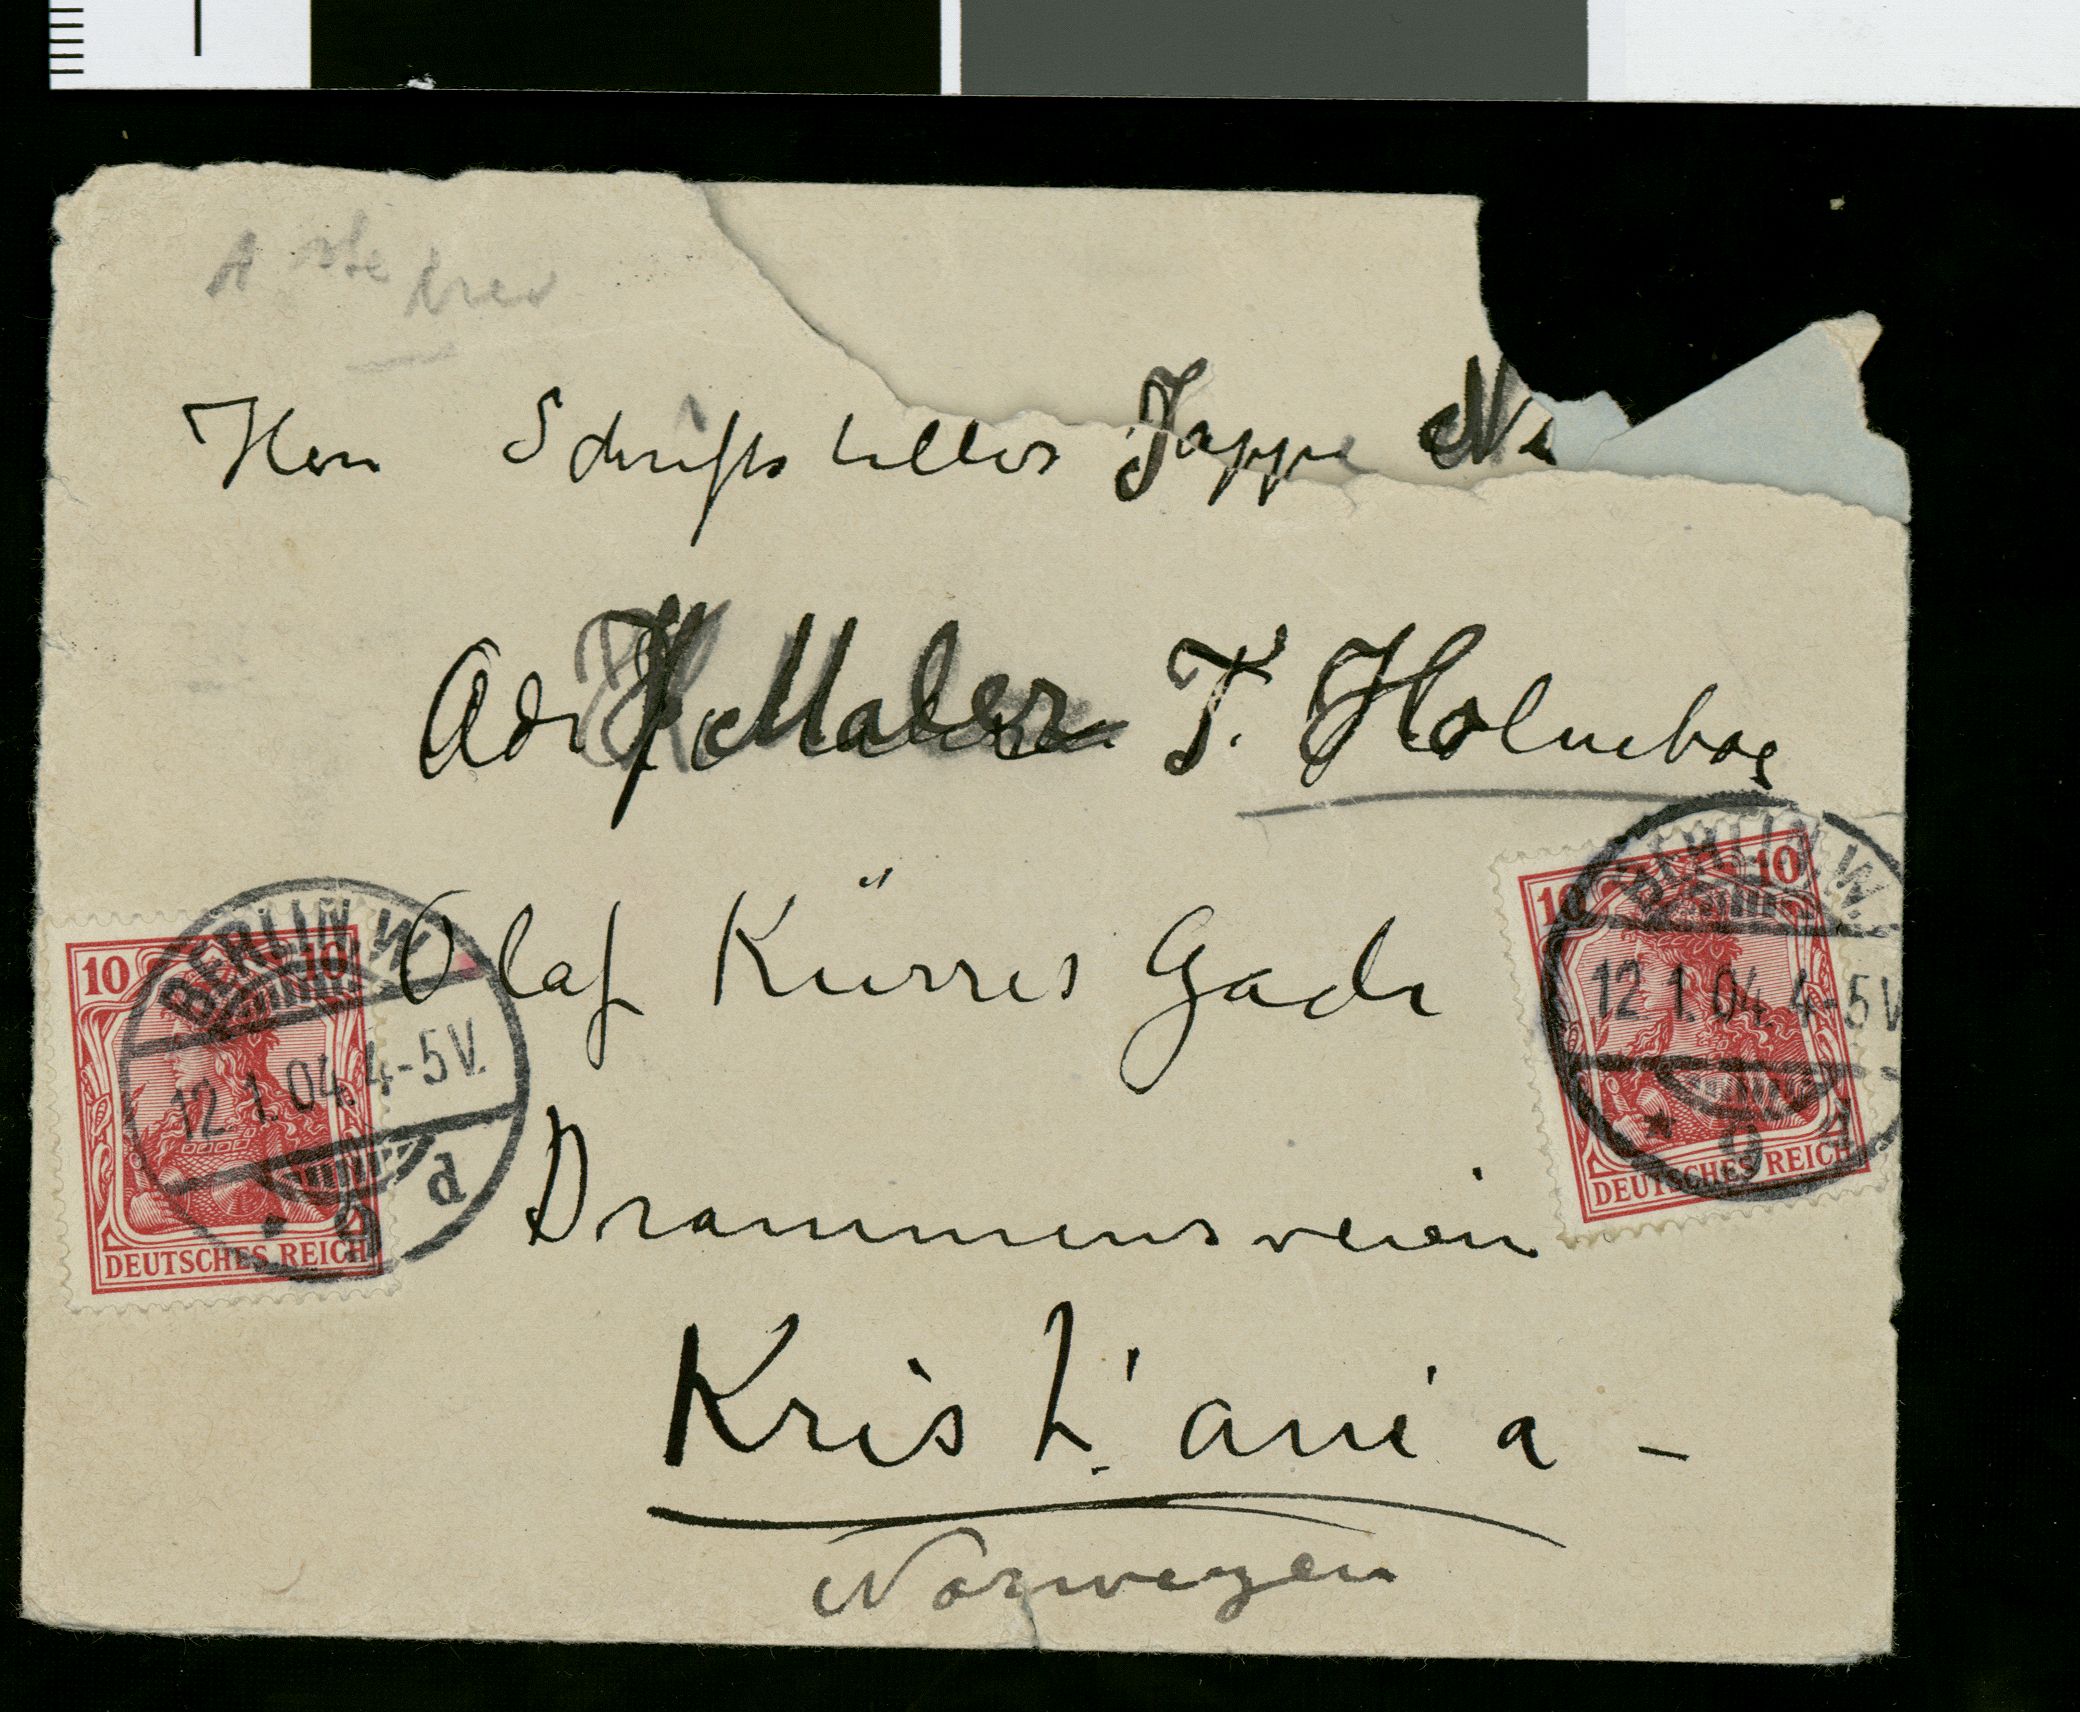 Herr Schriftsteller Jappe Ni
Adr Maler T. Holmebog
Olaf Kürres Gade
Drammensveien
Kristiania –
Norwegen
10 10
BERLIN W.
12.1.04. 4-5V.
* 9 d
DEUTSCHES REICH
10 10
BERLIN W.
12.1.04. 4-5V
* 9
DEUTSCHES REICH